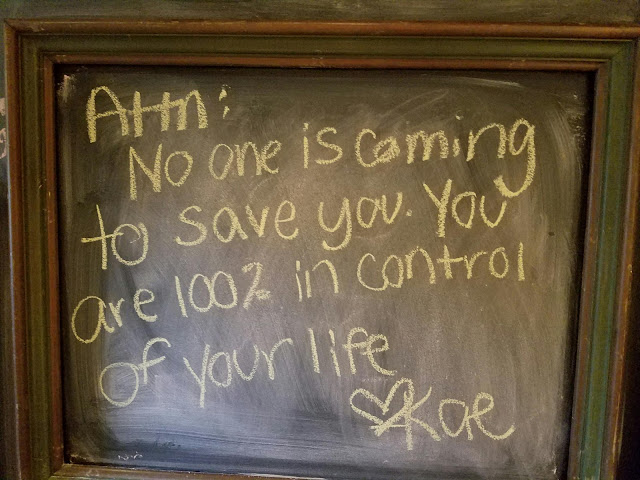 Attn:
No one is coming
to save you. You
are 100% in control
of your life
♡Kae